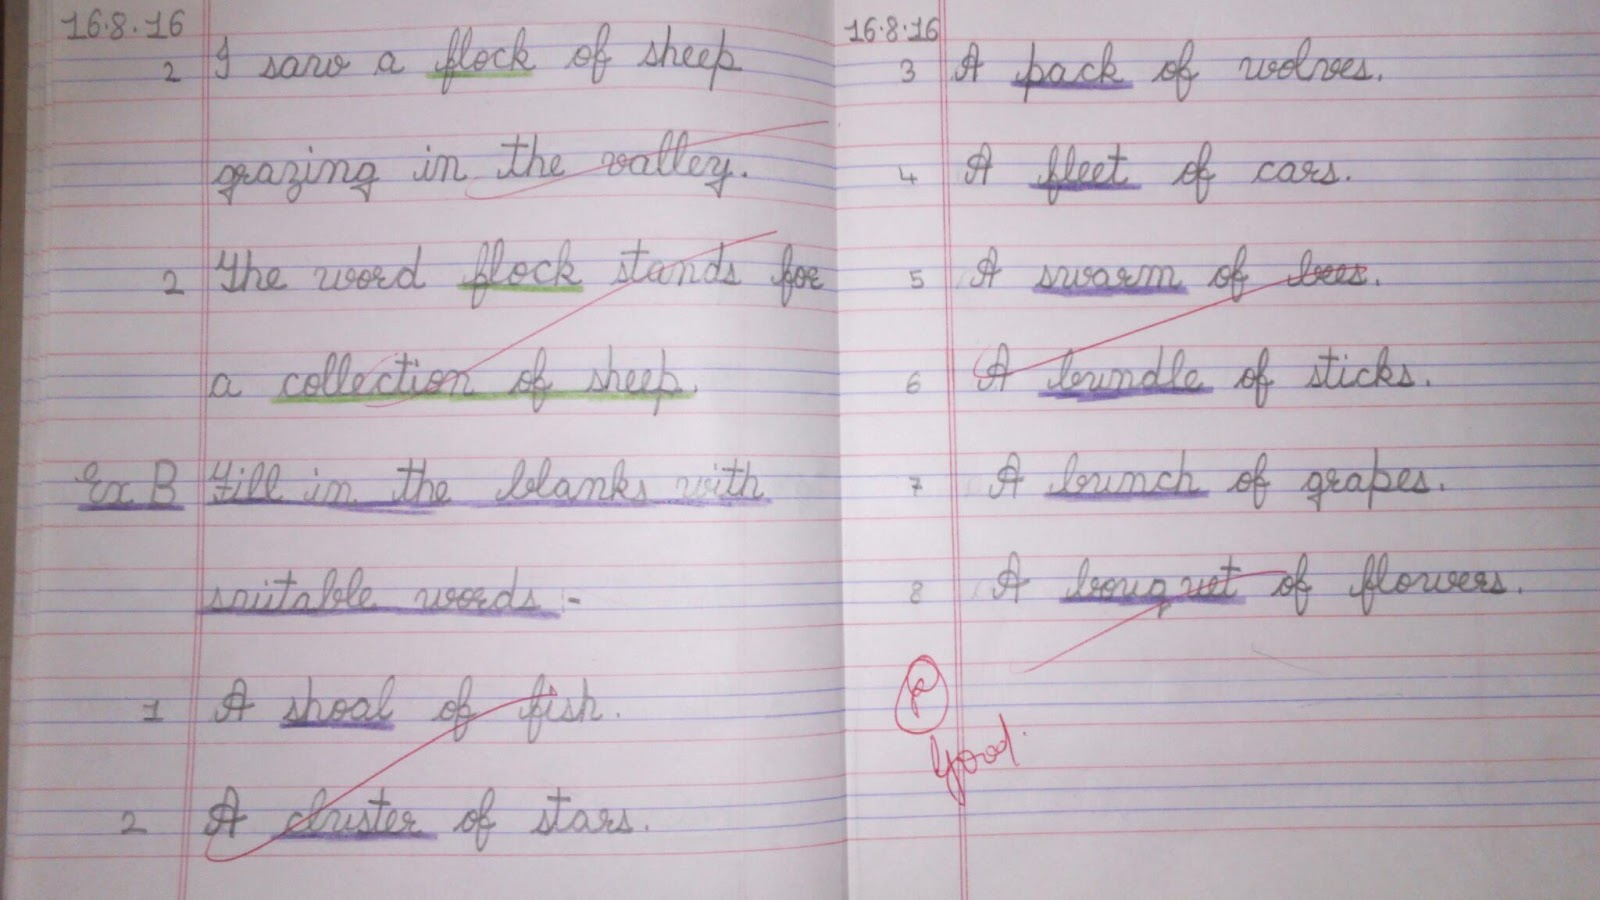 16.8.16
2 I saw a flock of sheep
grazing in the valley.
2 The word flock stands for
a collection of sheep.
Ex B Fill in the blanks with
suitable words :-
1 A shoal of fish.
2 A cluster of stars.
16.8.16
3 A pack of wolves.
4 A fleet of cars.
5 A swarm of bees.
6 A bundle of sticks.
7 A bunch of grapes.
8 A bouquet of flowers.
Good.